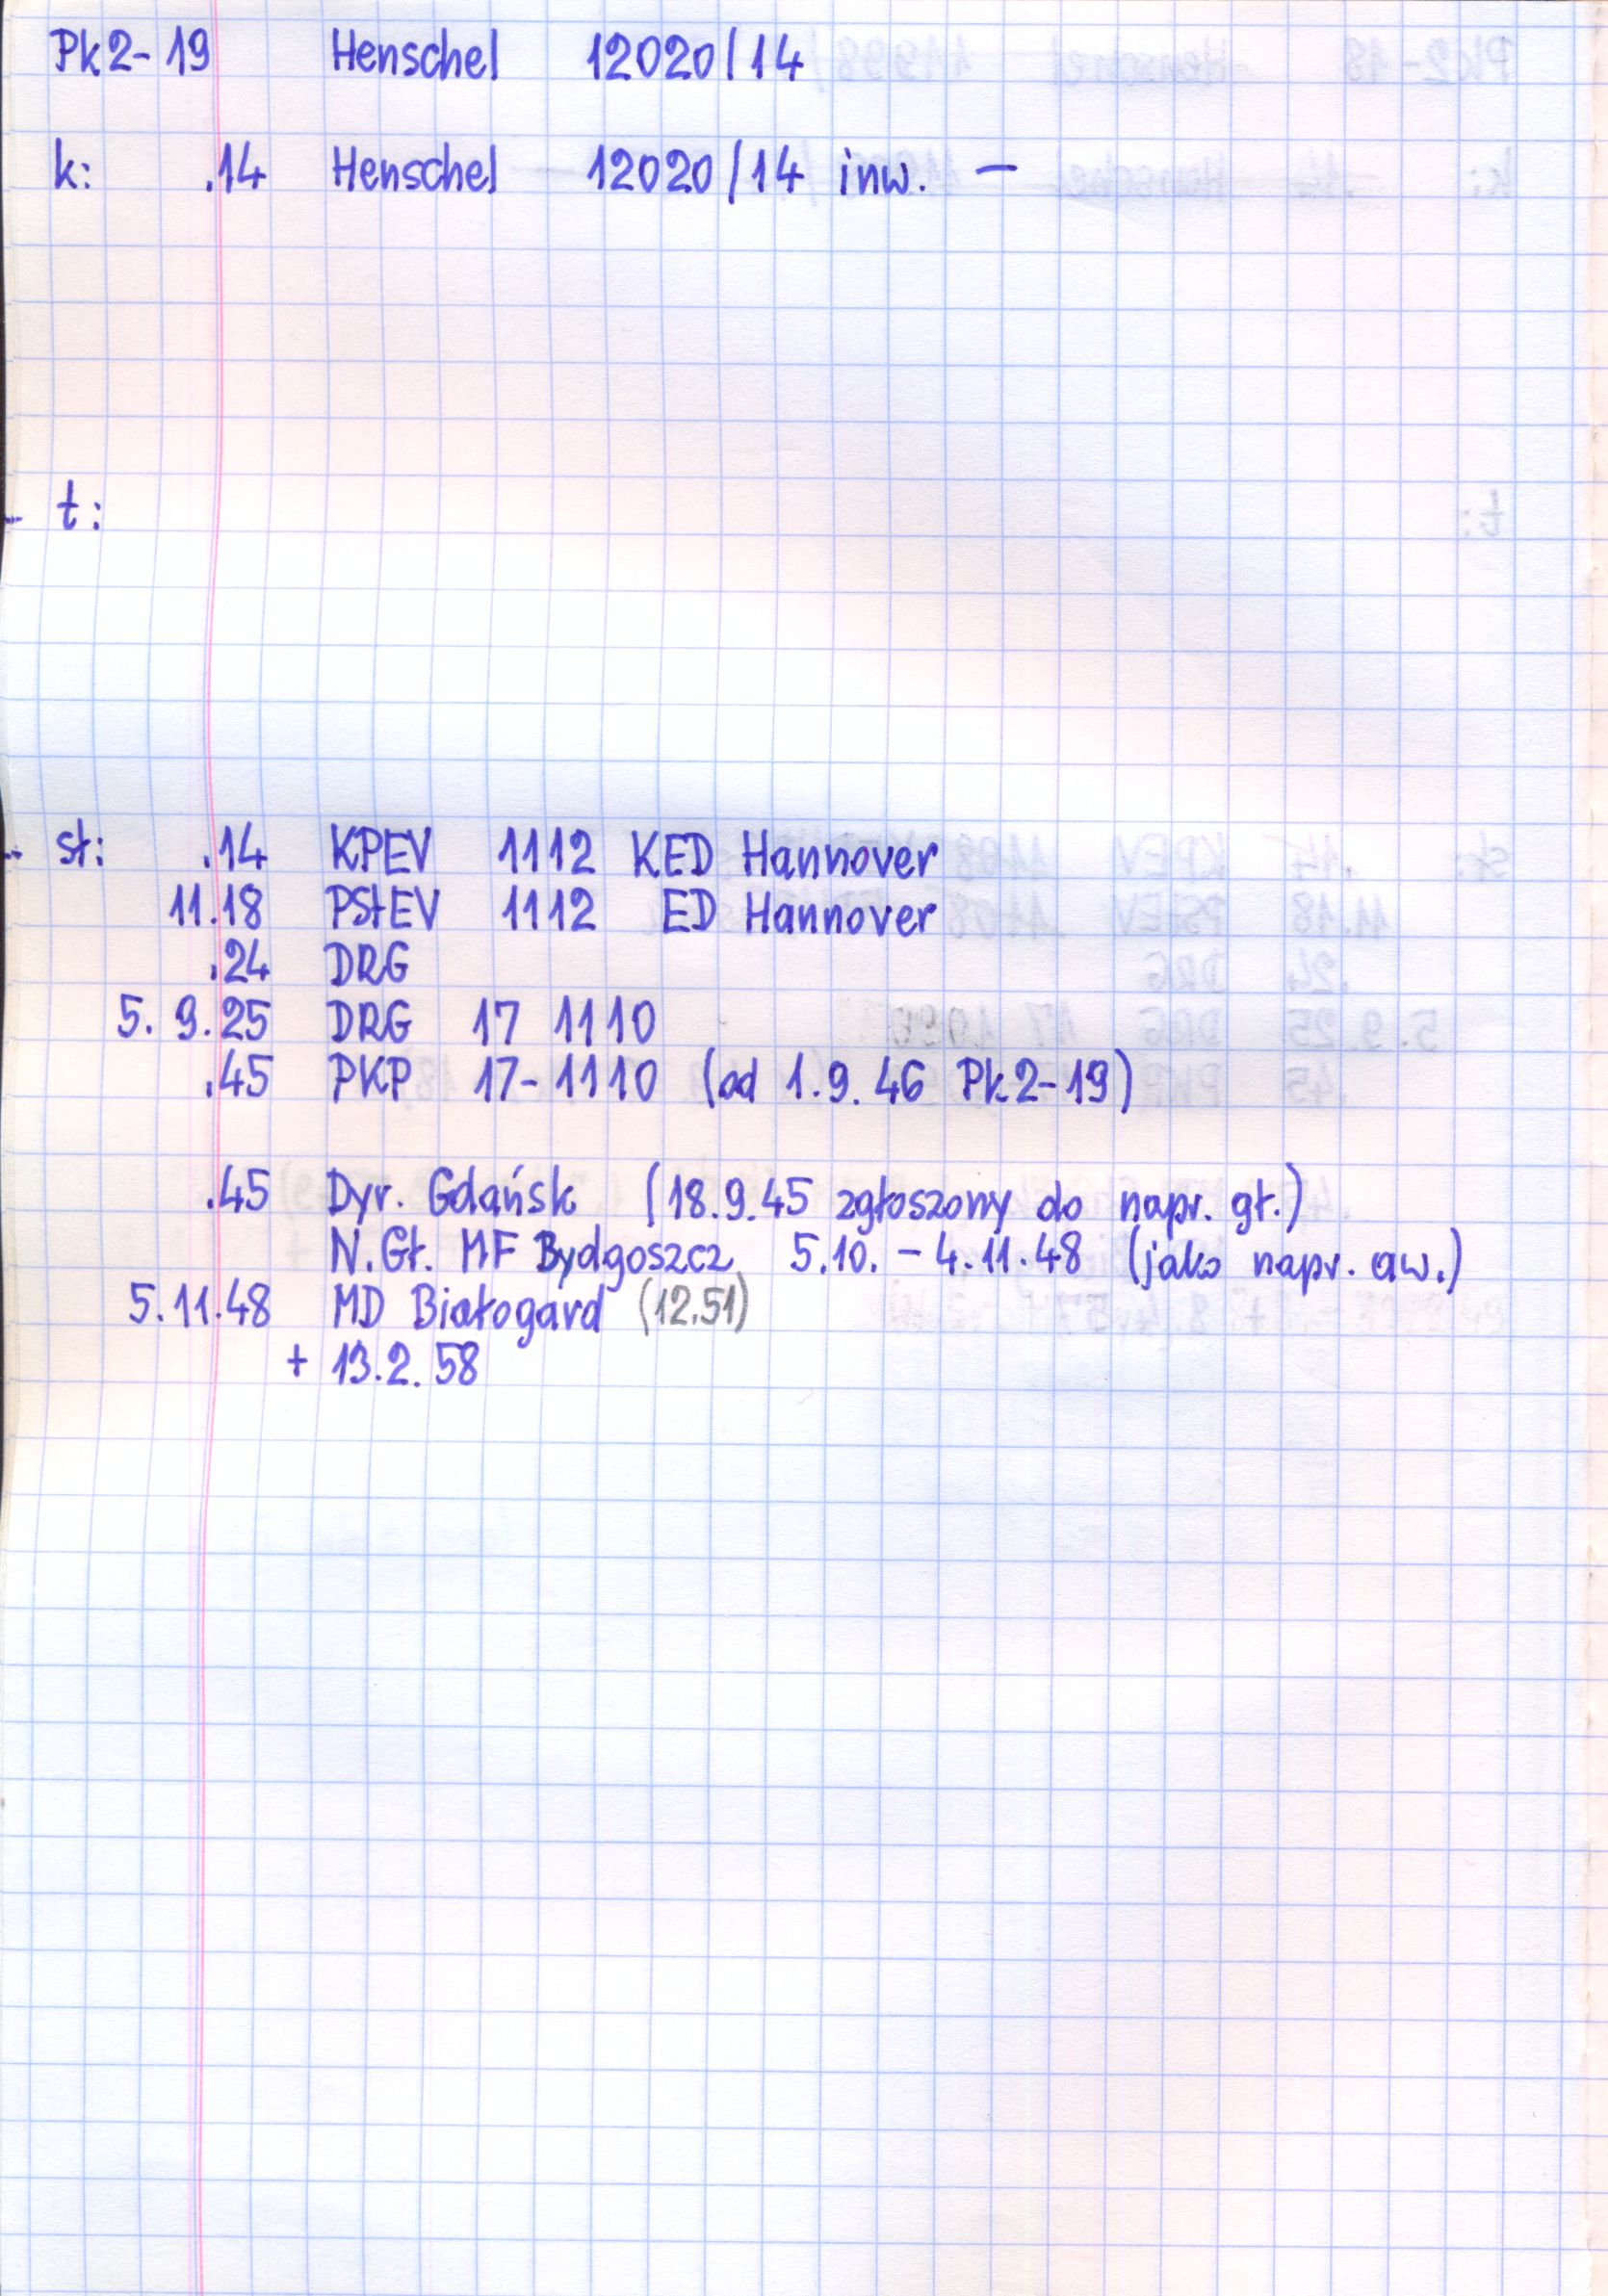 Pk2-19 Henschel 12020/14
k: .14 Henschel 12020/14 inw. –
t:
st: .14 KPEV 1112 KED Hannover
11.18 PStEV 1112 ED Hannover
.24 DRG
5.9.25 DRG 17 1110
.45 PKP 17-1110 (od 1.9.46 Pk2-19)
.45 Dyr. Gdańsk (18.9.45 zgłoszony do napr. gł.)
N.Gł. MF Bydgoszcz 5.10. – 4.11.48 (jako napr. aw.)
5.11.48 MD Białogard (12.51)
+ 13.2.58